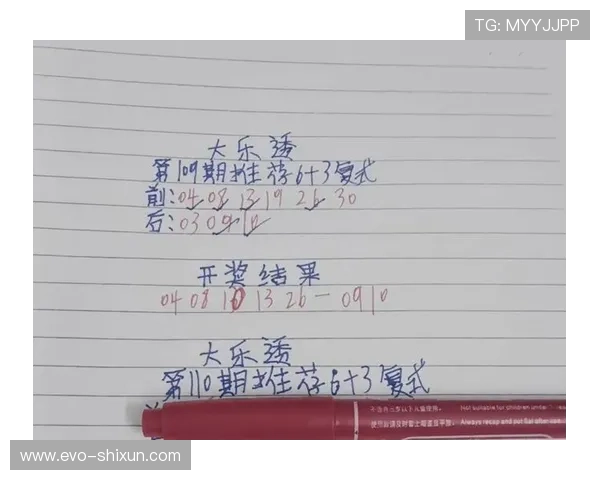 TG: MYYJJPP
大乐透
第109期推荐6+3复式
前:04 08 13 19 26 30
后:03 09 10
开奖结果
04 08 10 13 26-09 10
大乐透
第110期推荐6+3复式
Not suitable for children under
Always recap and put flat after use.
www.evo-shixun.com